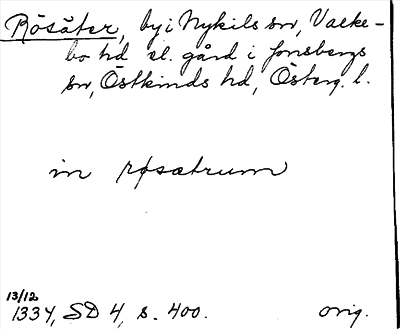 Rösäter, by i Nykils sn, Valke-
bo hd el. gård i Jonsbergs
sn, Östkinds hd, Österg. l.
in røsætrum
13/12
1334, SD 4, s. 400. orig.